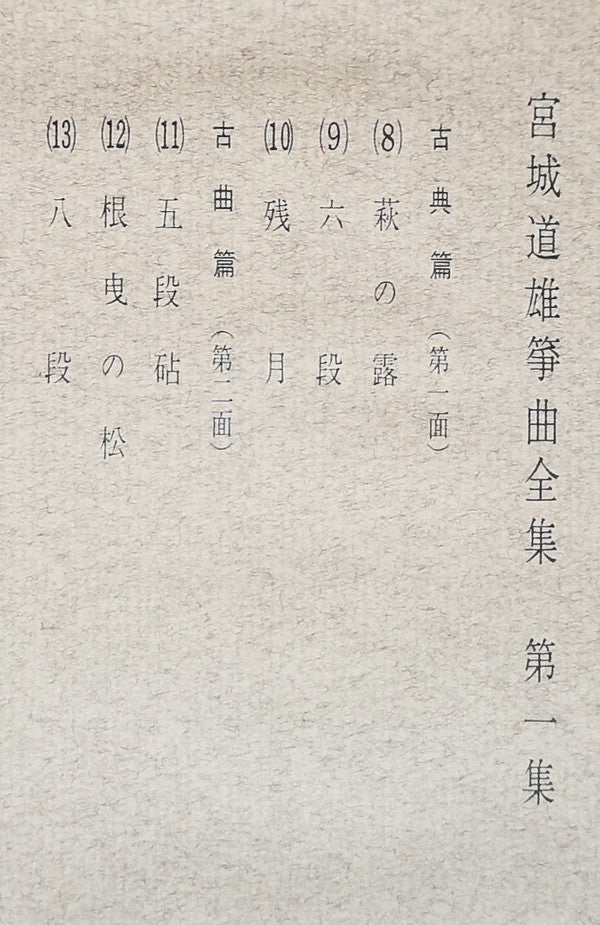 宮城道雄箏曲全集　第一集
古典篇（第一面）
(8) 萩の露
(9) 六段
(10) 残月
古曲篇（第二面）
(11) 五段砧
(12) 根曳の松
(13) 八段